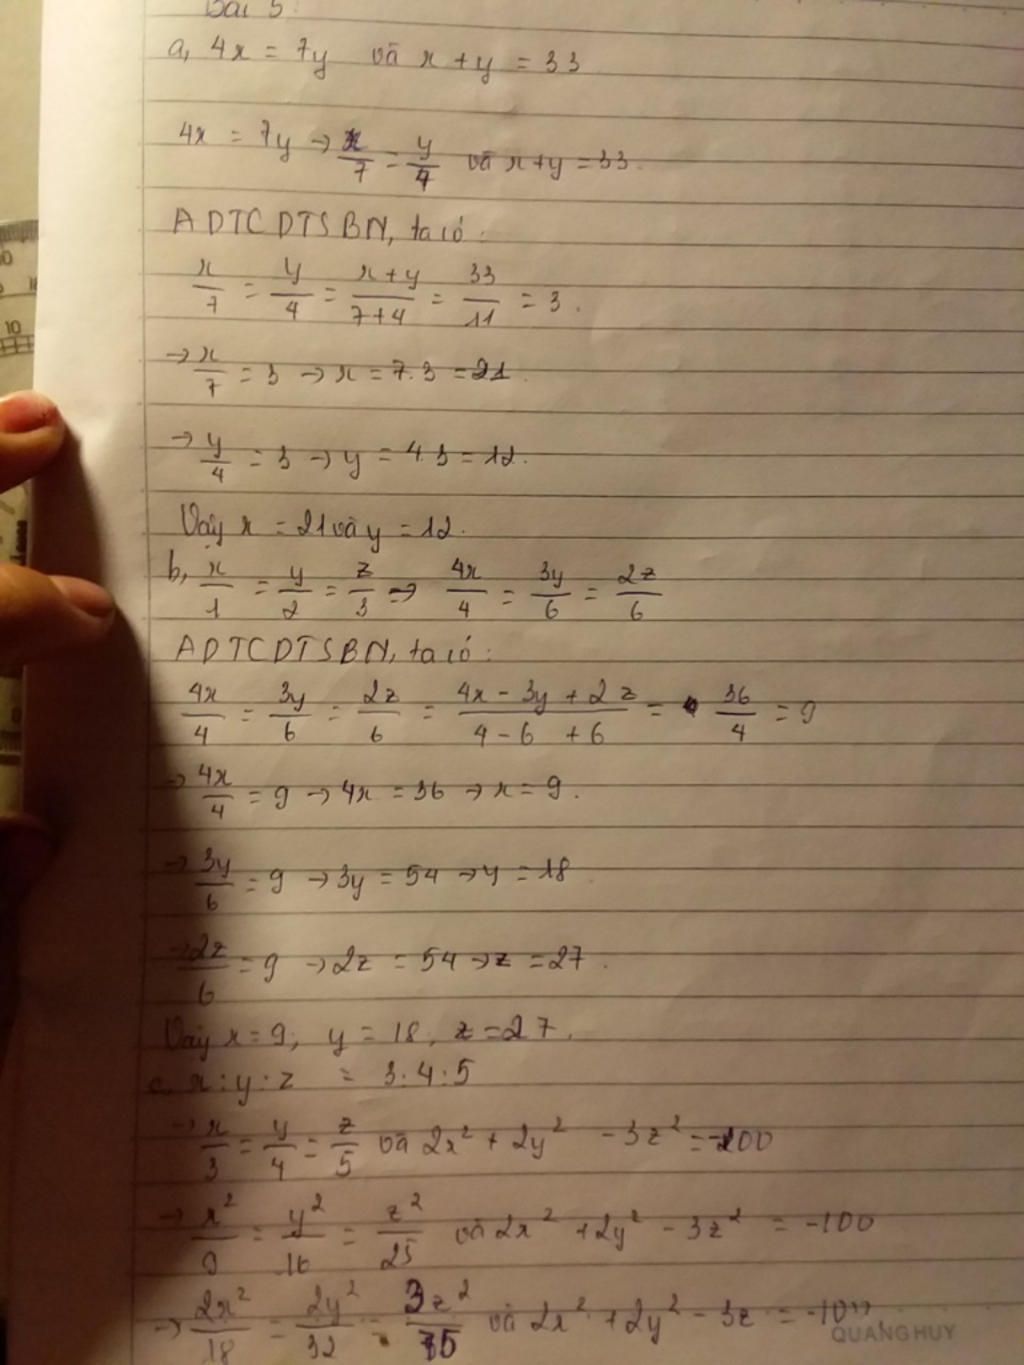 Bài 5:
a, 4x = 7y và x + y = 33
4x = 7y → x/7 = y/4 và x + y = 33.
ADTCDTSBN, ta có:
x/7 = y/4 = x + y/7 + 4 = 33/11 = 3.
→ x/7 = 3 → x = 7.3 = 21.
→ y/4 = 3 → y = 4.3 = 12.
Vậy x = 21 và y = 12.
b, x/1 = y/2 = z/3 → 4x/4 = 3y/6 = 2z/6
ADTCDTSBN, ta có:
4x/4 = 3y/6 = 2z/6 = 4x - 3y + 2z/4 - 6 + 6 = 36/4 = 9
→ 4x/4 = 9 → 4x = 36 → x = 9.
→ 3y/6 = 9 → 3y = 54 → y = 18.
→ 2z/6 = 9 → 2z = 54 → z = 27.
Vậy x = 9, y = 18, z = 27.
c, x : y : z = 3 : 4 : 5
→ x/3 = y/4 = z/5 và 2x² + 2y² - 3z² = -100
→ x²/9 = y²/16 = z²/25 và 2x² + 2y² - 3z² = -100
→ 2x²/18 = 2y²/32 = 3z²/75 và 2x² + 2y² - 3z = -100
QUANGHUY
10